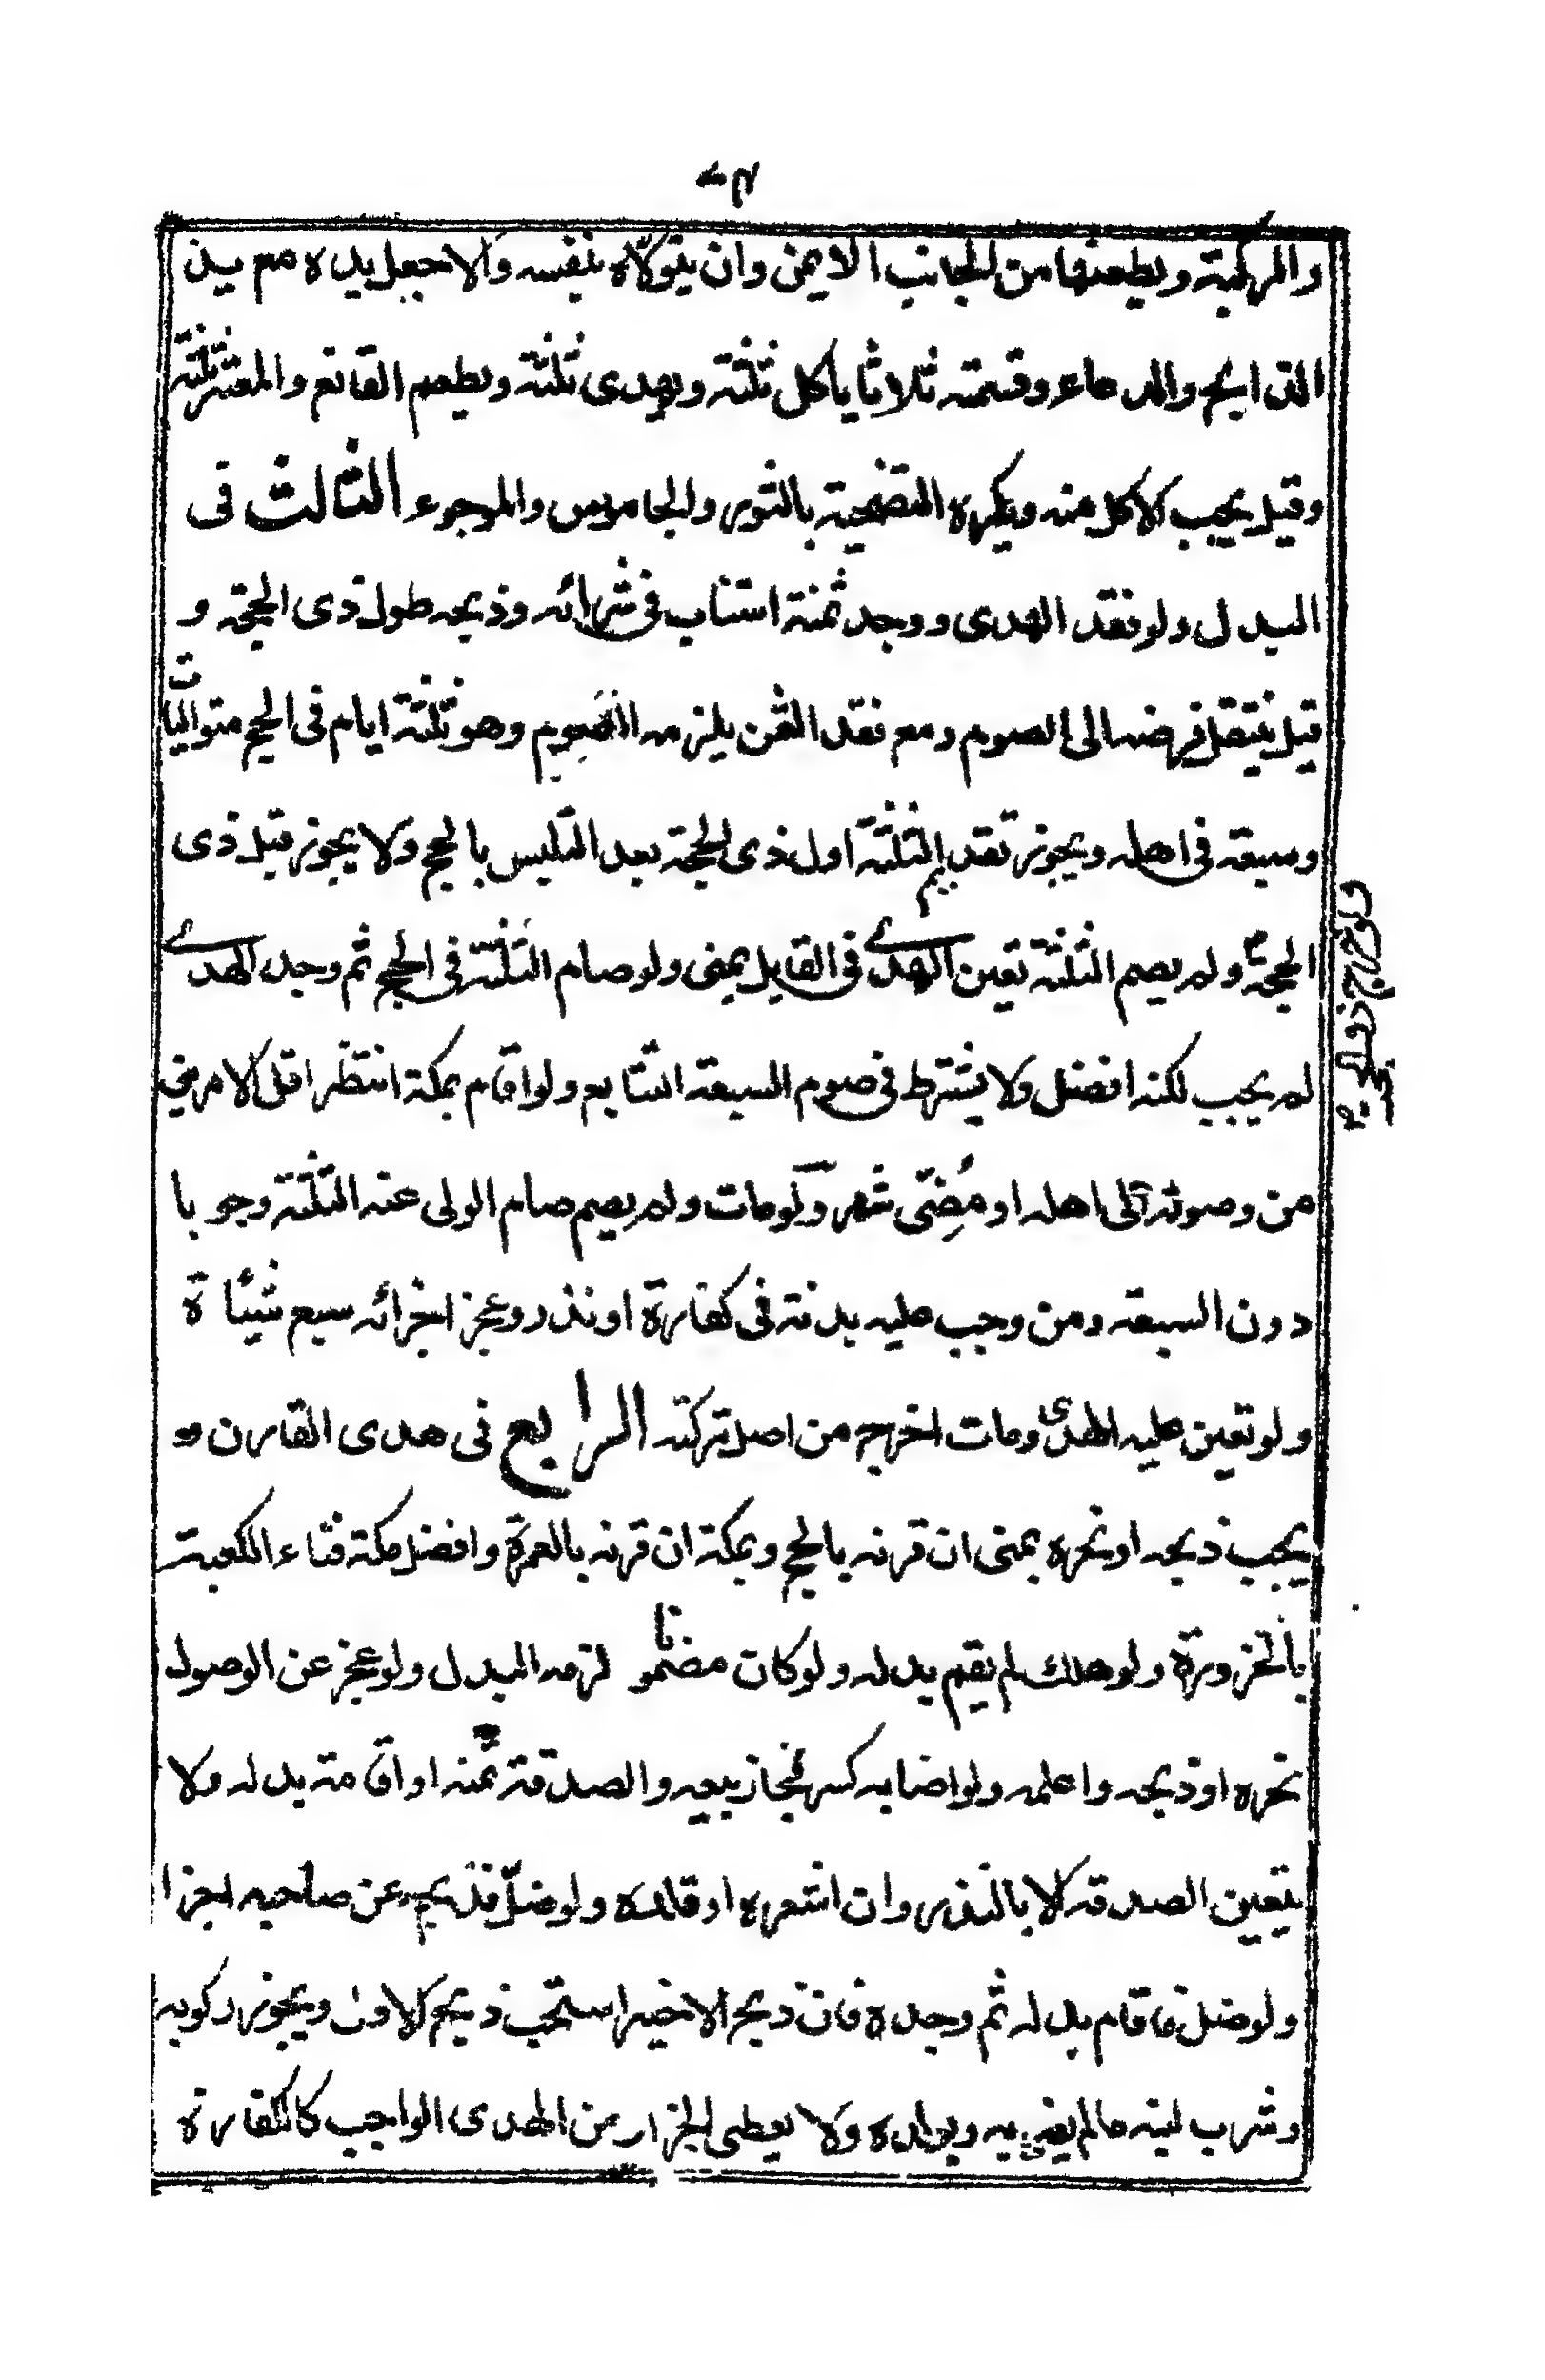 ٧٣
والركبة ويطعنها من الجانب الايمن وان يتولاه بنفسه والا جعل يده مع يد
الذابح والدعاء وقسمته ثلاثا ياكل ثلثة ويهدى ثلثة ويطعم القانع والمعتر ثلثة
وقيل يجب الاكل منه ويكره التضحية بالثور والجاموس والموجوء الثالث فى
البدل ولو فقد الهدى ووجد ثمنة استناب فى شرائه وذبحه طول ذى الحجة و
قيل ينتقل فرضه الى الصوم ومع فقد الثمن يلزمه الصوم وهو ثلثة ايام فى الحج متواليات
وسبعة فى اهله ويجوز تقديم الثلثة اول ذى الحجة بعد التلبس بالحج ولا يجوز قبل ذى
الحجة ولم يصم الثلثة تعين الهدى فى القابل بمنى ولو صام الثلثة فى الحج ثم وجد الهدى
ولو خرج ذو الحجة
لم يجب لكنه افضل ولا يشترط فى صوم السبعة التتابع ولو اقام بمكة انتظر اقل الامرين
من وصوله الى اهله او مُضِىّ شهر ولو مات ولم يصم صام الولى عنه الثلثة وجوبا
دون السبعة ومن وجب عليه بدنة فى كفارة او نذر وعجز اجزائه سبع شياة
ولو تعين عليه الهدى ومات اخرج من اصل تركته الرابع فى هدى القارن و
يجب ذبحه او نحره بمنى ان قرنه بالحج وبمكة ان قرنه بالعمرة وافضل مكة فناء الكعبة
بالحزورة ولو هلك لم يقم بدله ولو كان مضمونا لزمه البدل ولو عجز عن الوصول
نحره او ذبحه واعلمه ولو اصابه كسر جاز بيعه والصدقة بثمنه او اقامة بدله ولا
يتعين الصدقة الا بالنذر وان اشعره او قلده ولو ضلّ فذبح عن صاحبه اجزا
ولو ضل فاقام بدله ثم وجده فان ذبح الاخير استحب ذبح الاول ويجوز ركوبه
وشرب لبنه مالم يضر به وبولده ولا يعطى الجزار من الهدى الواجب كالكفارة